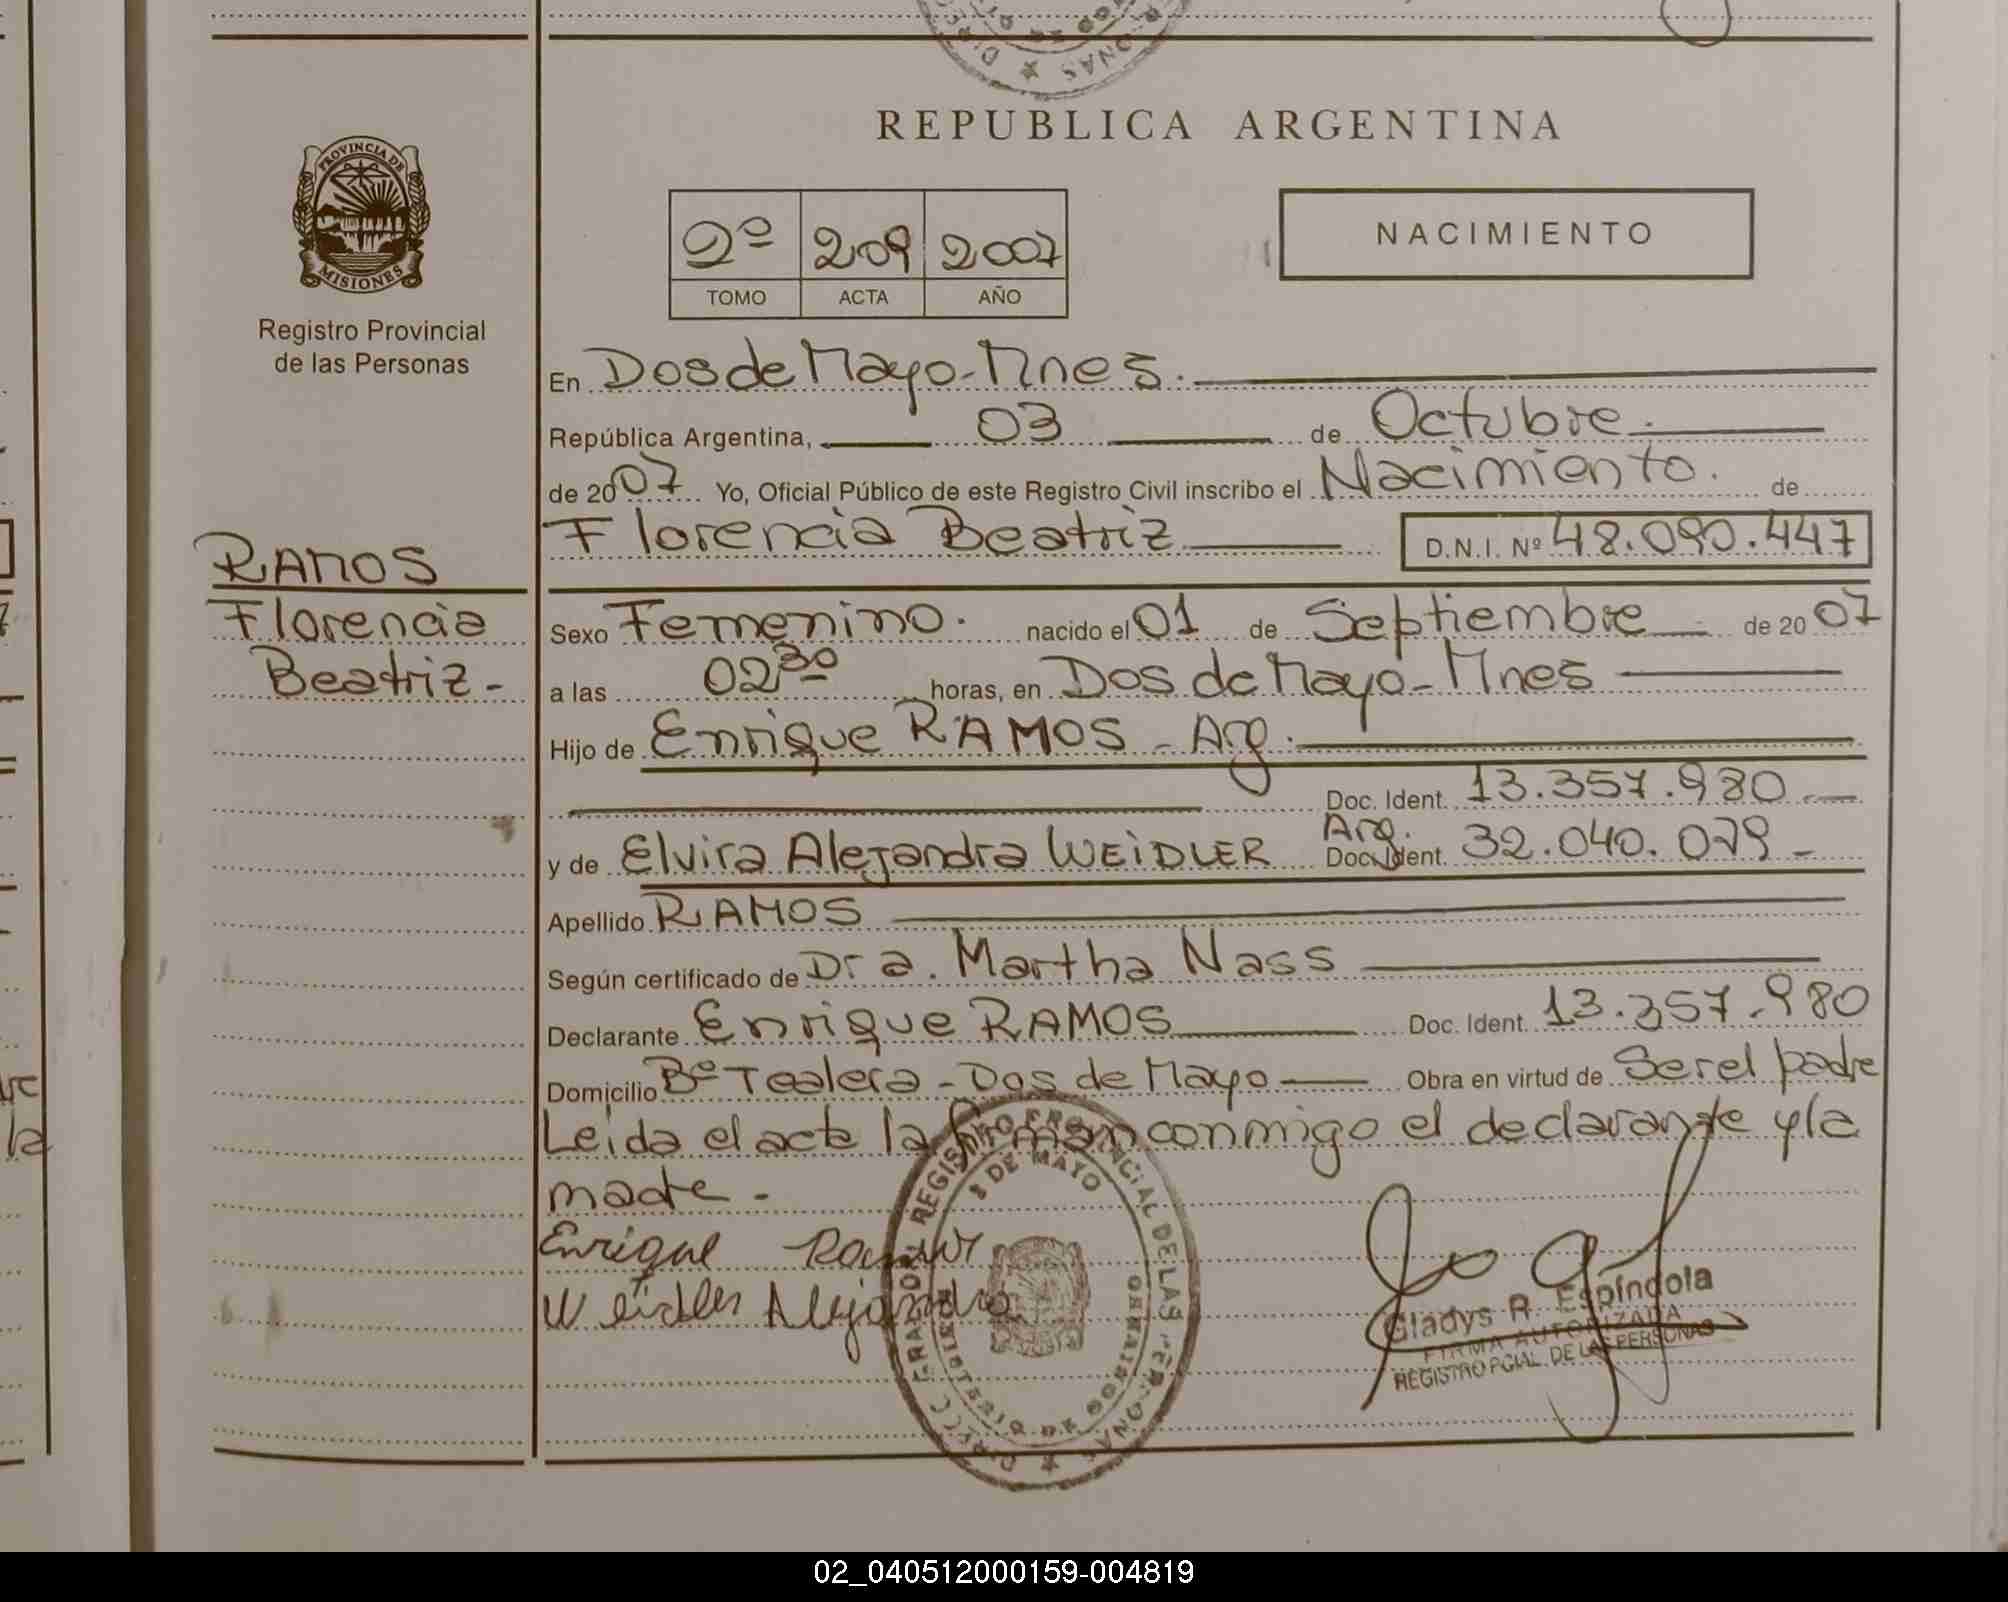 REPUBLICA ARGENTINA
PROVINCIA DE
MISIONES
Registro Provincial
de las Personas
2º 209 2007
TOMO ACTA AÑO
NACIMIENTO
En Dos de Mayo - Mnes.
República Argentina, 03 de Octubre.
de 2007 Yo, Oficial Público de este Registro Civil inscribo el Nacimiento. de
Florencia Beatriz D.N.I. Nº 48.090.447
RAMOS
Florencia
Beatriz -
Sexo Femenino. nacido el 01 de Septiembre de 2007
a las 02 30 horas, en Dos de Mayo - Mnes
Hijo de Enrique RAMOS - Arg.
Doc. Ident. 13.357.980
y de Elvira Alejandra WEIDLER Arg. Doc. Ident. 32.040.079 -
Apellido RAMOS
Según certificado de Dra. Martha Nass
Declarante Enrique RAMOS Doc. Ident. 13.357.980
Domicilio Bº Tealera - Dos de Mayo Obra en virtud de Ser el padre
Leida el acta la firman conmigo el declarante y la
madre -
Enrique Ramos
Weidler Alejandra
REGISTRO PROVINCIAL DE LAS PERSONAS
DE MAYO
MINISTERIO DE GOBIERNO
Gladys R. Espíndola
FIRMA AUTORIZADA
REGISTRO PCIAL. DE LAS PERSONAS
02_040512000159-004819